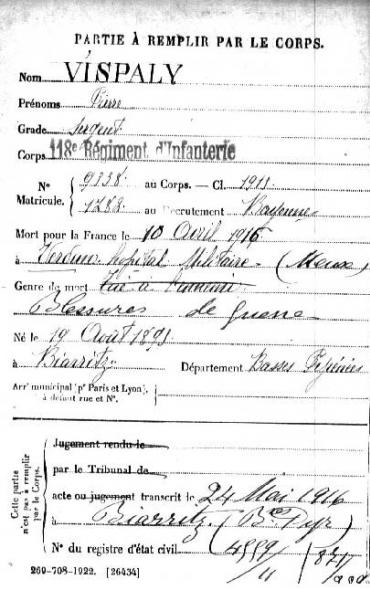 PARTIE À REMPLIR PAR LE CORPS.
Nom VISPALY
Prénoms Pierre
Grade Sergent
Corps 118e Régiment d'Infanterie
N° 9338 au Corps. — Cl. 1911
Matricule. 1288 au Recrutement Bayonne
Mort pour la France le 10 Avril 1916
à Verdun hopital Militaire (Meuse)
Genre de mort Tué à l'ennemi
Blessures de Guerre
Né le 19 Août 1891
à Biarritz Département Basses Pyrénées
Arrt municipal (pr Paris et Lyon),
à défaut rue et N°.
Cette partie
n'est pas à remplir
par le Corps.
Jugement rendu le
par le Tribunal de
acte ou jugement transcrit le 24 Mai 1916
à Biarritz (Bses Pyr)
N° du registre d'état civil
269-708-1922. [26434]